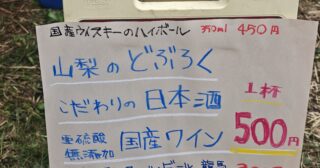 国産ウィスキーのハイボール 350ml 450円
山梨のどぶろく
こだわりの日本酒 1杯
亜硫酸無添加 国産ワイン 500円